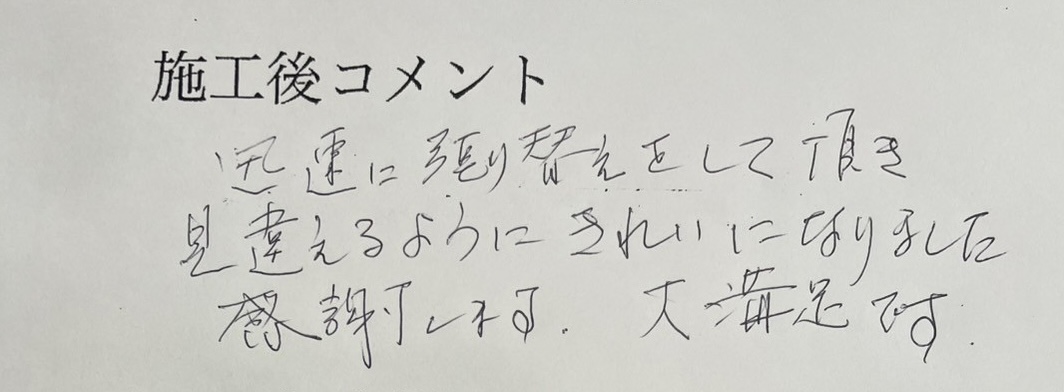 施工後コメント
迅速に張り替えをして頂き
見違えるようにきれいになりました
感謝します. 大満足です.